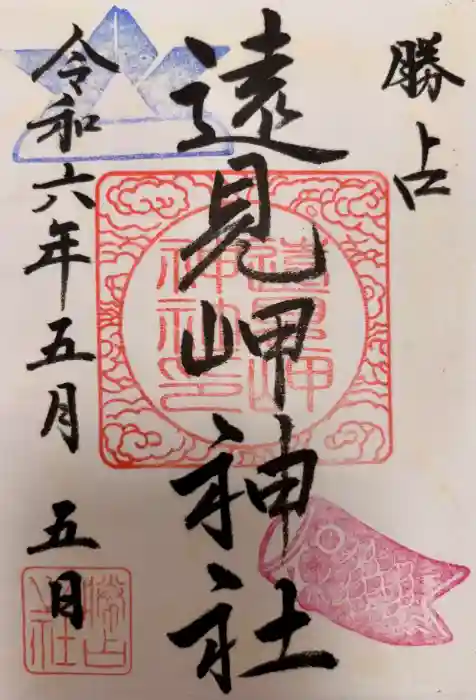 勝占
遠見岬神社
令和六年五月五日
遠見岬
神社印
勝占